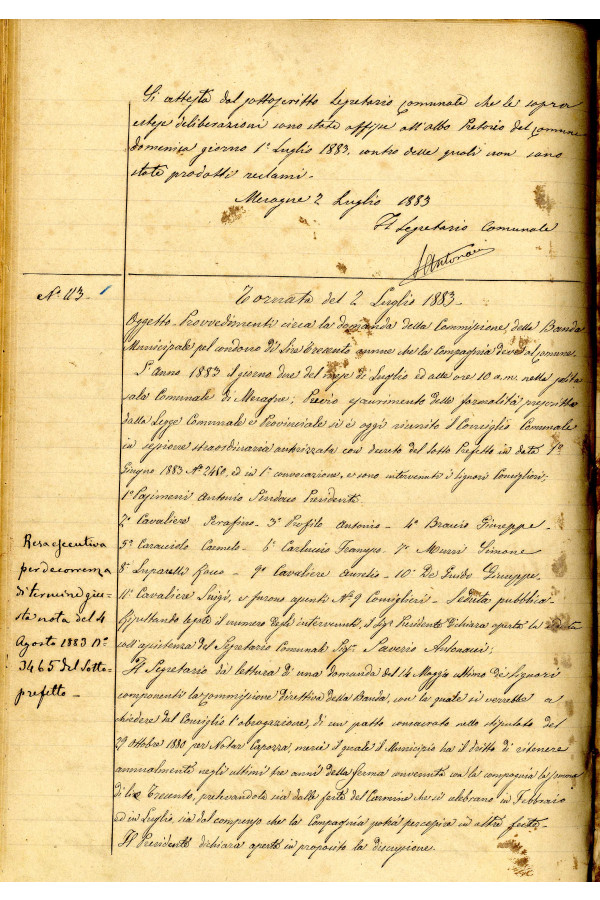 Si attesta dal sottoscritto Segretario Comunale che le sopra
estese deliberazioni sono state affisse all'albo Pretorio del comune
domenica giorno 1º Luglio 1883. contro delle quali non sono
state prodotti reclami.
Mesagne 2 Luglio 1883
Il Segretario Comunale
SAntonaci
Nº 113.
Tornata del 2 Luglio 1883.
Oggetto Provvedimenti circa la domanda della Commissione della Banda
Municipale pel condono di Lire Trecento annue che la Compagnia deve al Comune.
L'Anno 1883 il giorno due del mese di Luglio ed alle ore 10 a.m. nella solita
sala Comunale di Mesagne; Previo esaurimento delle formalità prescritte
dalla Legge Comunale e Provinciale si è oggi riunito il Consiglio Comunale
in sessione straordinaria autorizzata con decreto del Sotto Prefetto in data 1º
Giugno 1883 Nº 2480, ed in 1ª convocazione, e sono intervenuti i Signori Consiglieri;
1º Antonio Sindaco Presidente
2º Cavaliere Serafino - 3º Profilo Antonio - 4º Braccio Giuseppe -
5º Caracciolo Carmelo - 6º Carluccio - 7º Murri Simone
8º Luparelli Rocco - 9º Cavaliere Aurelio - 10º De Guido Giuseppe
11º Cavaliere Luigi, e furono assenti Nº 9 Consiglieri - Seduta pubblica
Risultando legale il numero degli intervenuti, il Sigr Presidente dichiara aperta la seduta
coll'assistenza del Segretario Comunale Sigr Saverio Antonaci;
Il Segretario dà lettura di una domanda del 14 Maggio ultimo dei signori
componenti la Commissione Direttiva della Banda, con la quale si verrebbe a
chiedere dal Consiglio l'abrogazione, di un patto consacrato nello stipulato del
29 Ottobre 1880 per Notar Capozza, mercè il quale il Municipio ha il dritto di ritenere
annualmente negli ultimi tre anni della ferma convenuta con la compagnia la somma
di Lire Trecento, prelevandola sia dalle feste del Carmine che si celebrano in Febbraio
ed in Luglio, sia dal compenso che la Compagnia potrà percepire in altre feste.
Il Presidente dichiara aperta in proposito la discussione.
Resa esecutiva
per decorrenza
di termine giu-
sta nota del 4
Agosto 1883 Nº
3465 del Sotto-
prefetto -